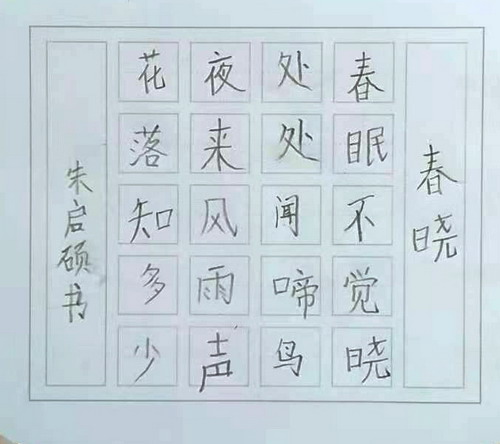 春晓
春眠不觉晓
处处闻啼鸟
夜来风雨声
花落知多少
朱启硕书